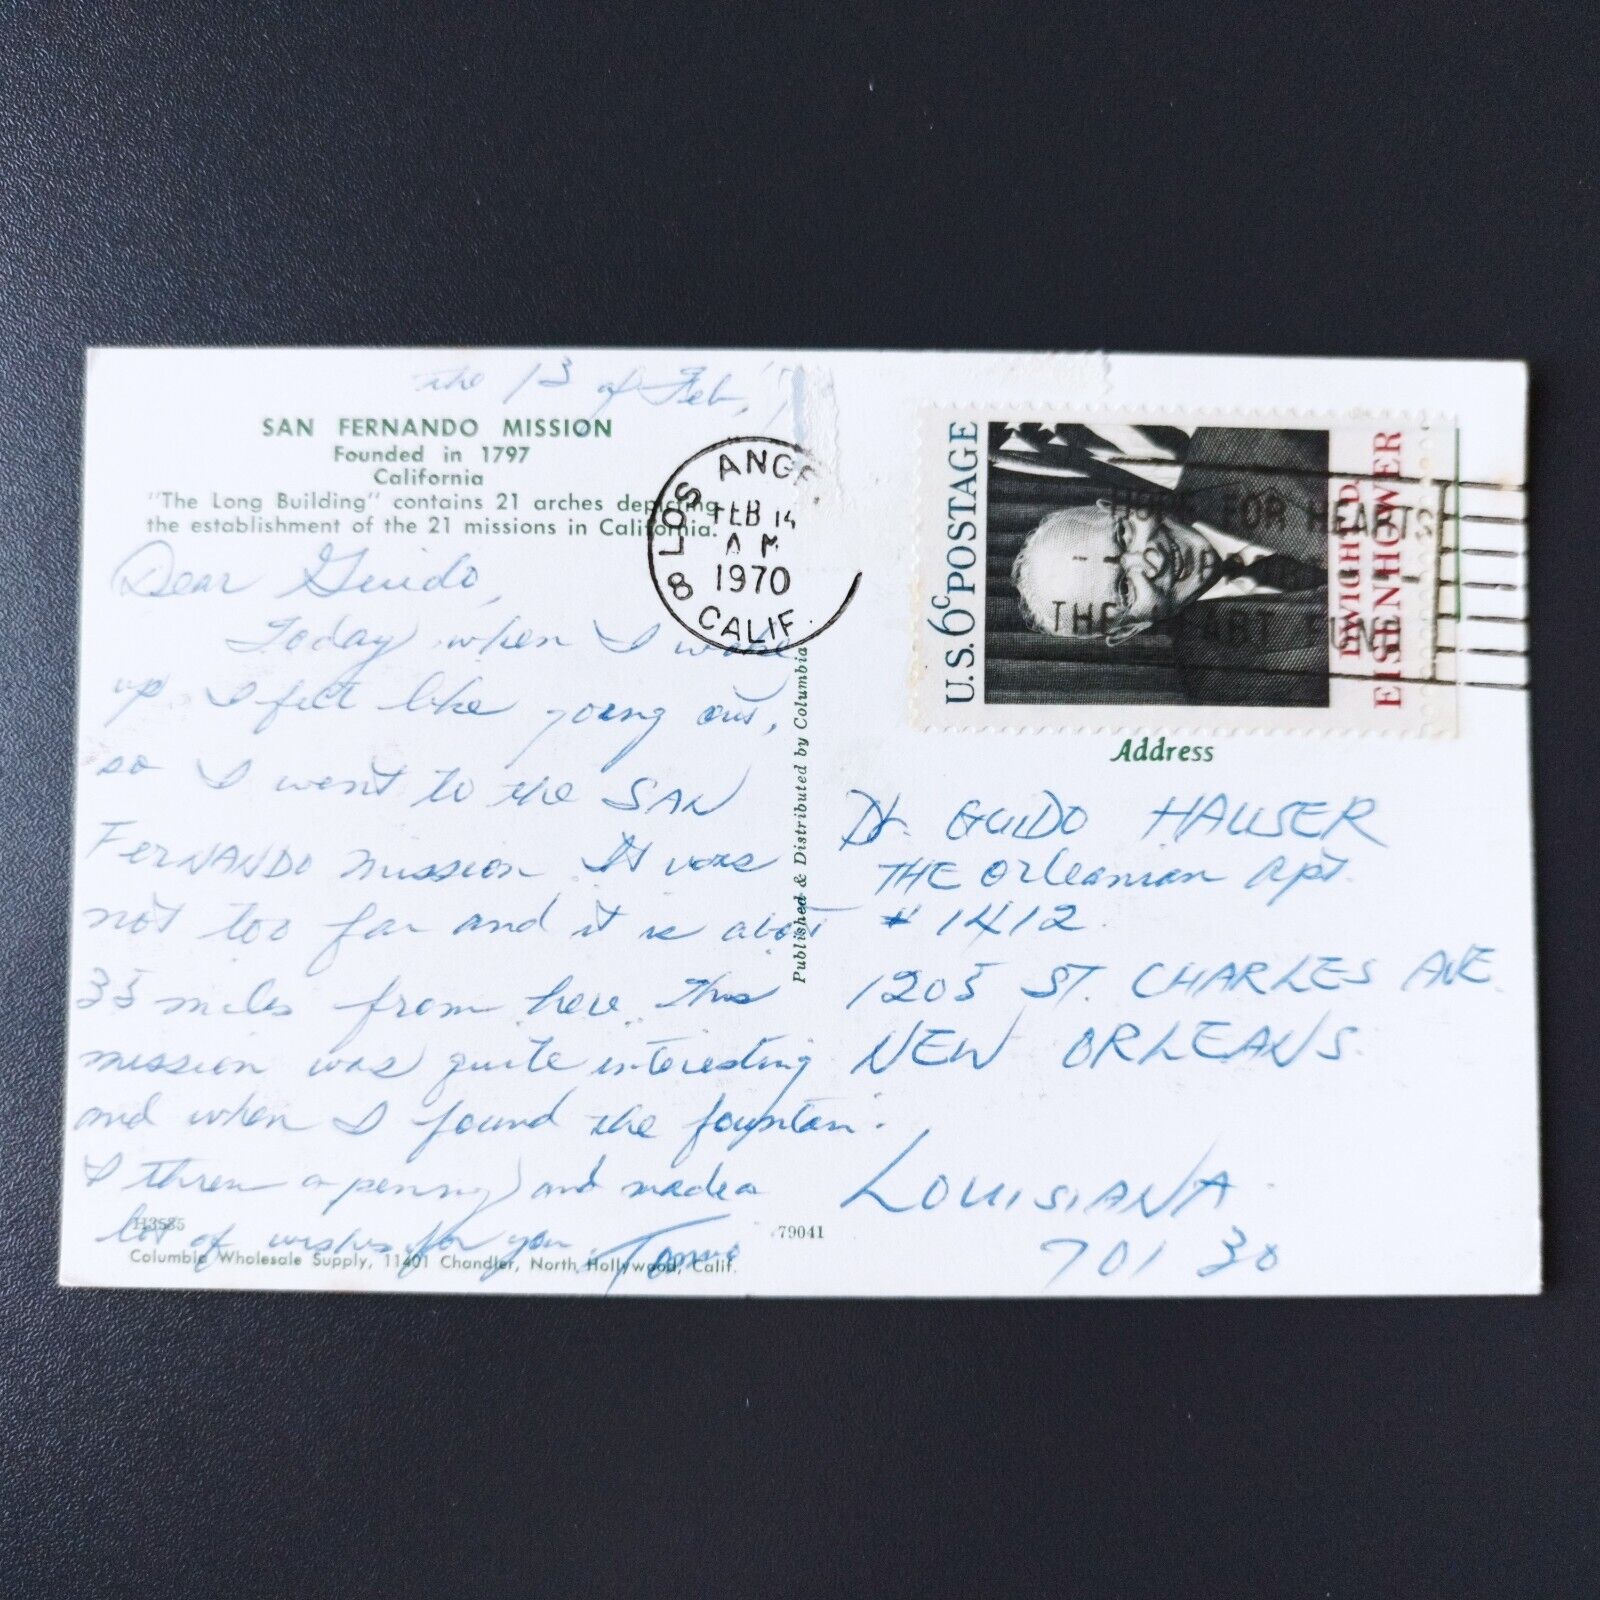 the 13 of Feb,
SAN FERNANDO MISSION
Founded in 1797
California
"The Long Building" contains 21 arches depicting
the establishment of the 21 missions in California.
Dear Guido,
Today when I woke
up I felt like going out,
so I went to the SAN
FERNANDO mission. It was
not too far and it is about
35 miles from here. This
mission was quite interesting
and when I found the fountain.
I threw a penny and made a
lot of wishes for you.
H3585
79041
Columbia Wholesale Supply, 11401 Chandler, North Hollywood, Calif.
Published & Distributed by Columbia
LOS ANGE
FEB 14
AM
1970
8 CALIF
U.S. 6c POSTAGE
DWIGHT D.
EISENHOWER
HOPE FOR HEARTS
THE HEART FUND
Address
Dr. GUIDO HAUSER
THE Orleanian Apt.
# 1412
1205 ST. CHARLES AVE.
NEW ORLEANS.
LOUISIANA.
70130